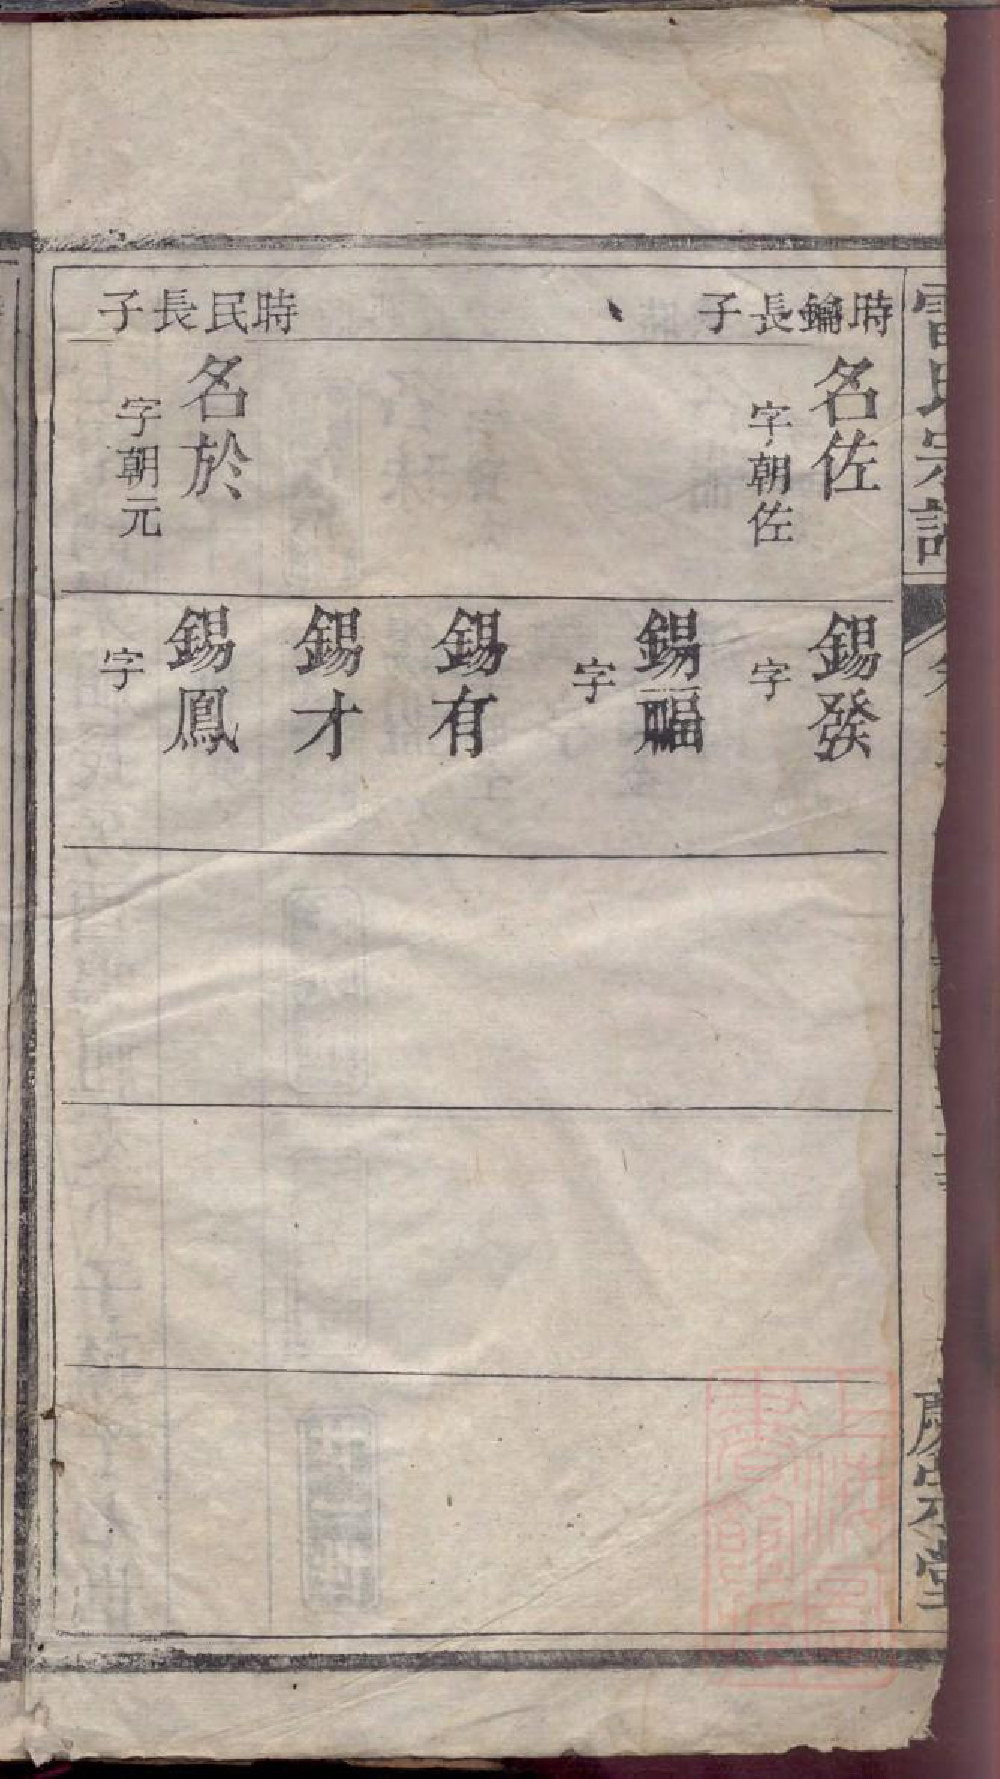 時鑰長子
名佐
字朝佐
時民長子
名於
字朝元
錫發
字
錫福
字
錫有
錫才
錫鳳
字